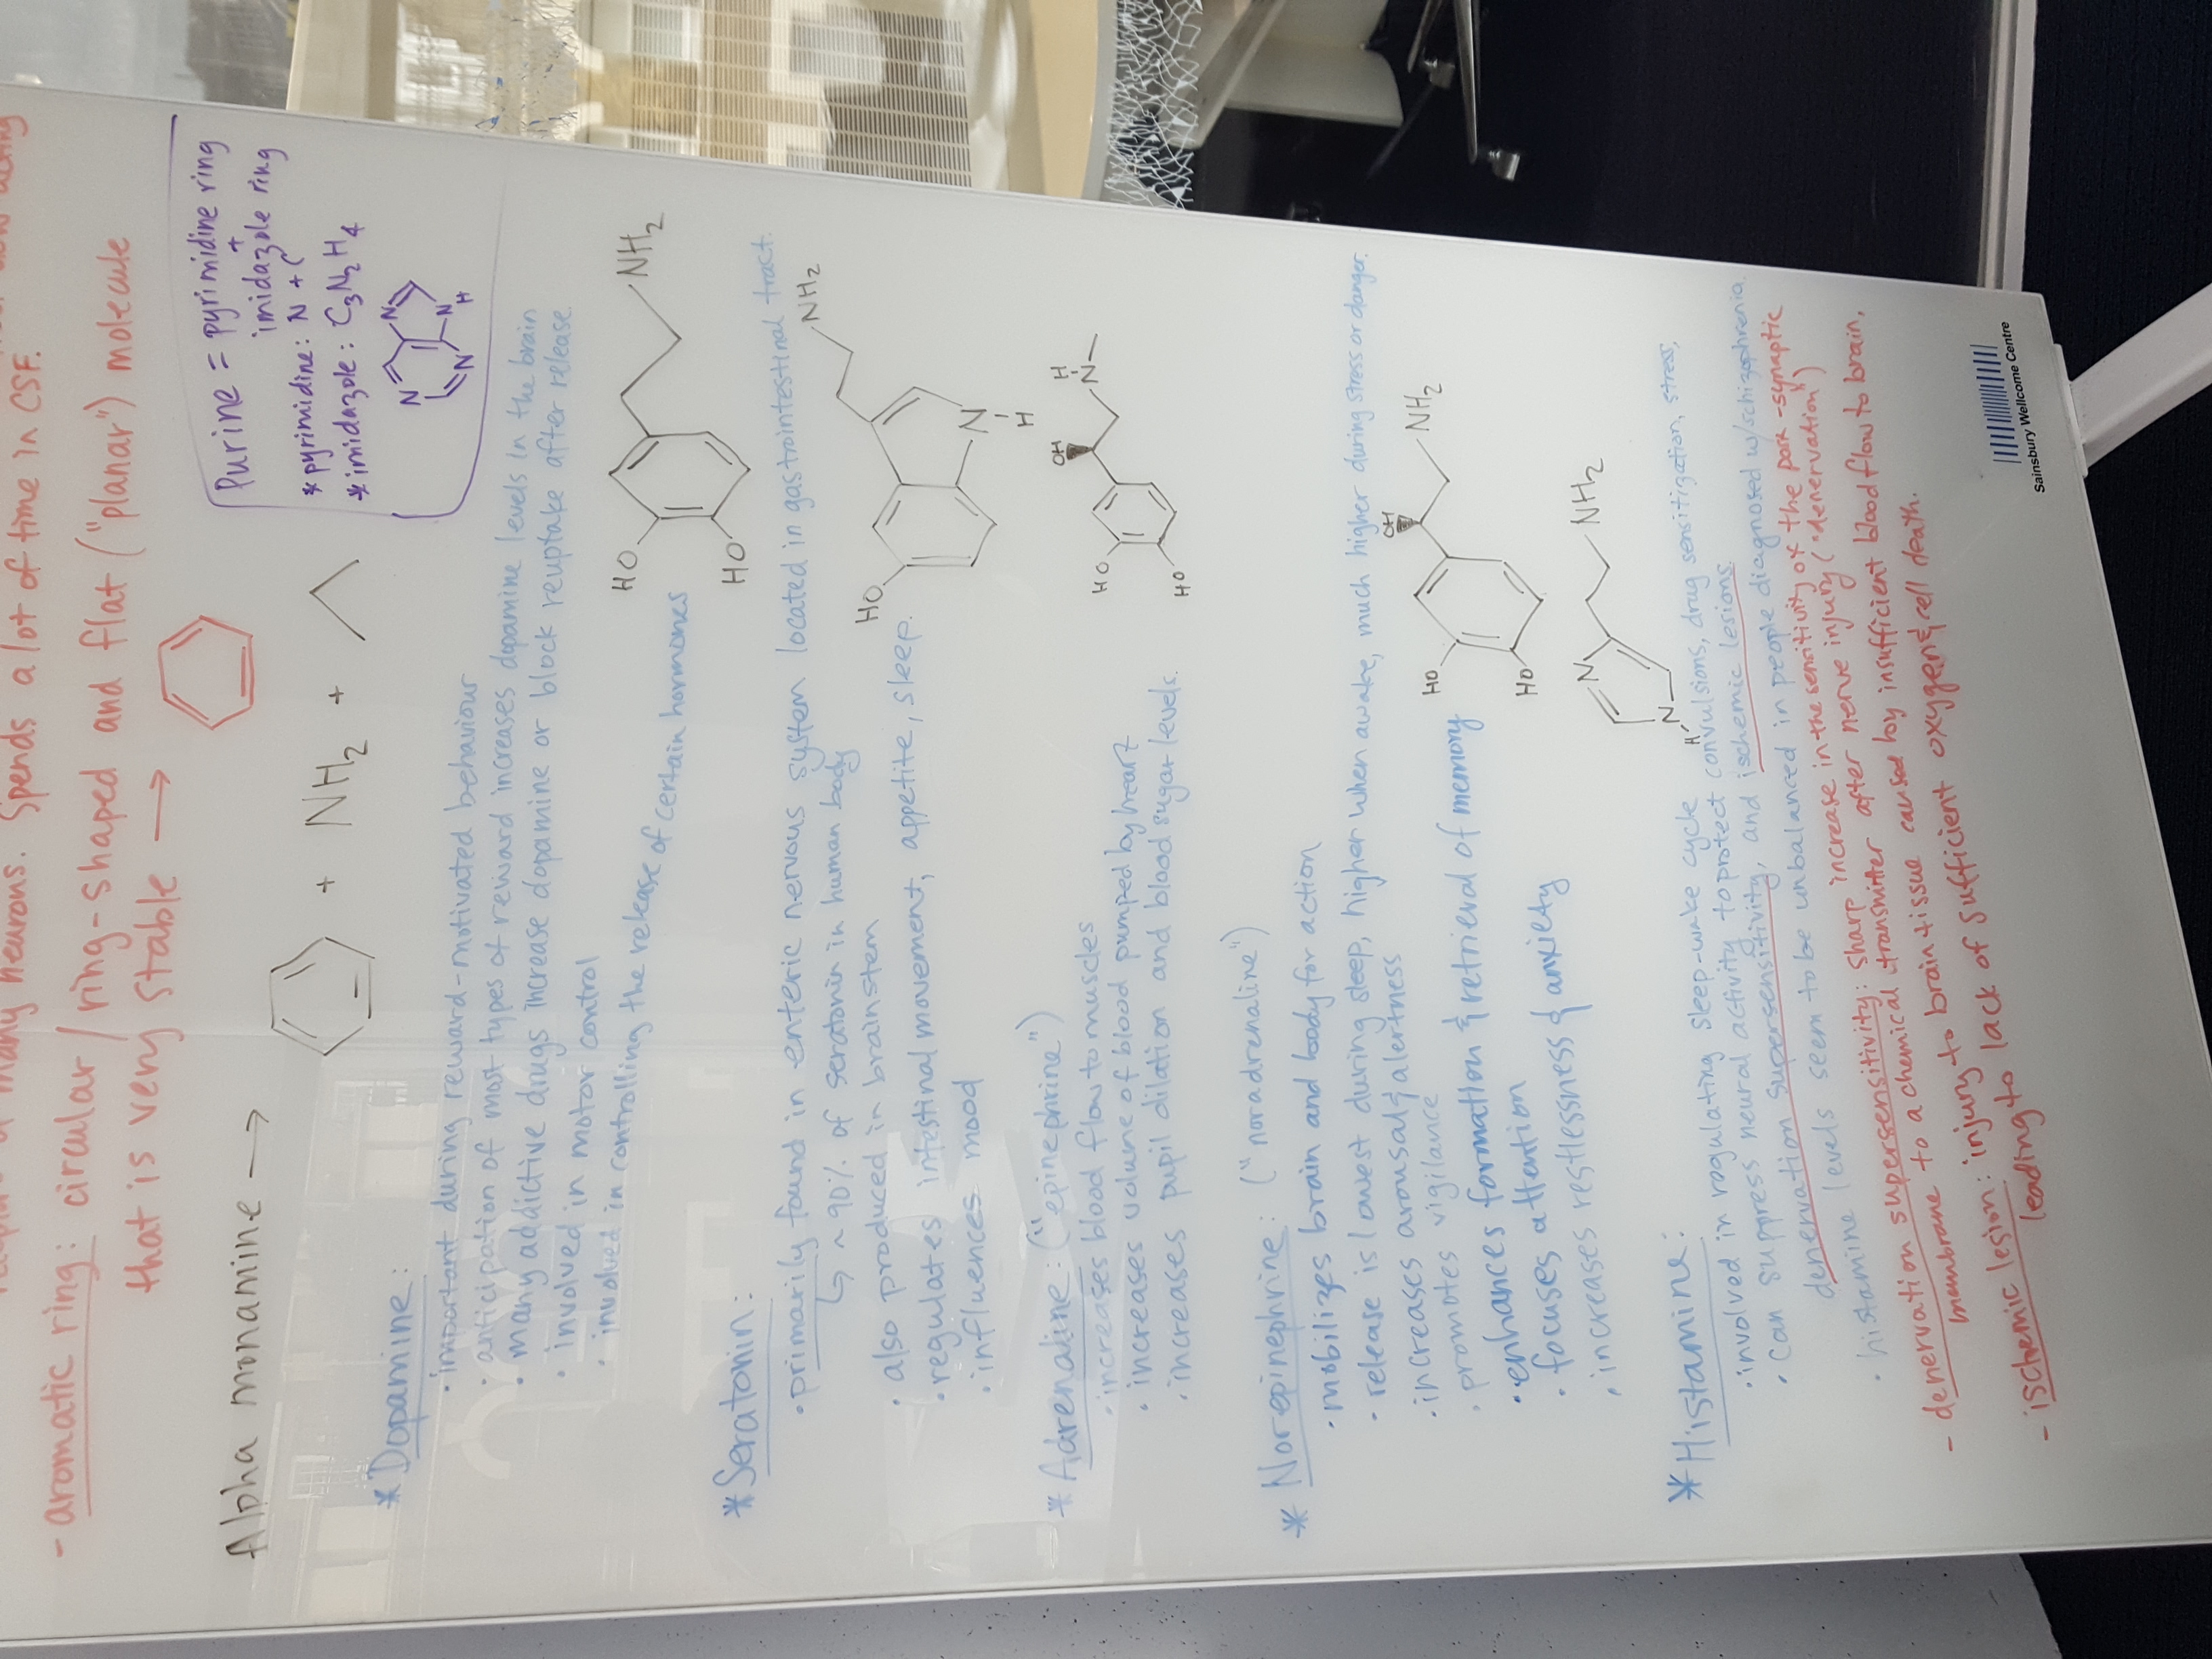 many neurons. Spends a lot of time in CSF.
- aromatic ring: circular / ring-shaped and flat ("planar") molecule
that is very stable →
Alpha monamine →
+ NH2 +
Purine = pyrimidine ring
+
imidazole ring
* pyrimidine: N + C
* imidazole: C3N2H4
N
N
N
N
H
* Dopamine:
· important during reward-motivated behaviour
· anticipation of most types of reward increases dopamine levels in the brain
· many addictive drugs increase dopamine or block reuptake after release.
· involved in motor control
· involved in controlling the release of certain hormones
HO
NH2
HO
* Seratonin:
· primarily found in enteric nervous system located in gastrointestinal tract.
↳ ~90% of seratonin in human body
· also produced in brainstem
· regulates intestinal movement, appetite, sleep.
· influences mood
NH2
HO
N
H
* Adrenaline: ("epinephrine")
· increases blood flow to muscles
· increases volume of blood pumped by heart
· increases pupil dilation and blood sugar levels.
OH
H
N
HO
HO
* Norepinephrine: ("noradrenaline")
· mobilizes brain and body for action
· release is lowest during sleep, higher when awake, much higher during stress or danger.
· increases arousal & alertness
· promotes vigilance
· enhances formation & retrieval of memory
· focuses attention
· increases restlessness & anxiety
OH
HO
NH2
HO
N
NH2
N
H
* Histamine:
· involved in regulating sleep-wake cycle
· can suppress neural activity to protect convulsions, drug sensitization, stress,
denervation supersensitivity, and ischemic lesions.
· histamine levels seem to be unbalanced in people diagnosed w/schizophrenia.
- denervation supersensitivity: sharp increase in the sensitivity of the post-synaptic
membrane to a chemical transmitter after nerve injury ("denervation")
- ischemic lesion: injury to brain tissue caused by insufficient blood flow to brain,
leading to lack of sufficient oxygen & cell death.
Sainsbury Wellcome Centre